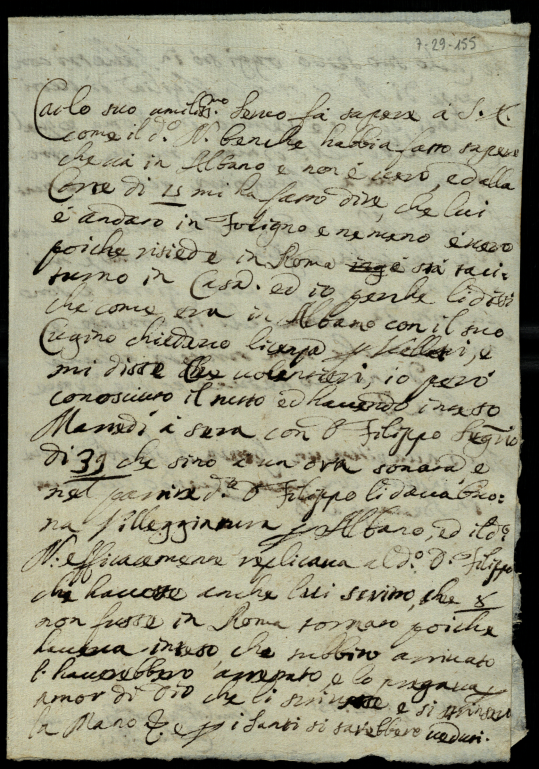 7-29-155
Carlo suo umiliss.mo Servo fà sapere à S. E.
come il d.o N. benche habbia fatto sapere
che và in Albano e non è vero, ed alla
Corte di 15 mi ha fatto dire, che lui
è andato in Foligno e nemeno è vero
poiche risiede in Roma e stà taci-
turno in Casa. ed io perche li dissi
che come era in Albano con il suo
Cugino chiedavo licenza p Velletri, e
mi disse che volentieri, io però
conosciuto il tutto ed havendo inteso
Martedì à sera con D Filippo
di 39 che sino a un ora sonata, e
nel partire d.o D Filippo li dava buo-
na Villeggiatura p Albano, ed il d.o
N. efficacemente replicava al d.o D. Filippo
che havesse anche lui scritto, che 8
non fusse in Roma tornato, poiche
haveva inteso, che subbito arrivato
l'haverebbero arrestato e lo pregava p
amor di Dio che li scrivesse e si
la Mano &. e p i Santi si sarebbero veduti.